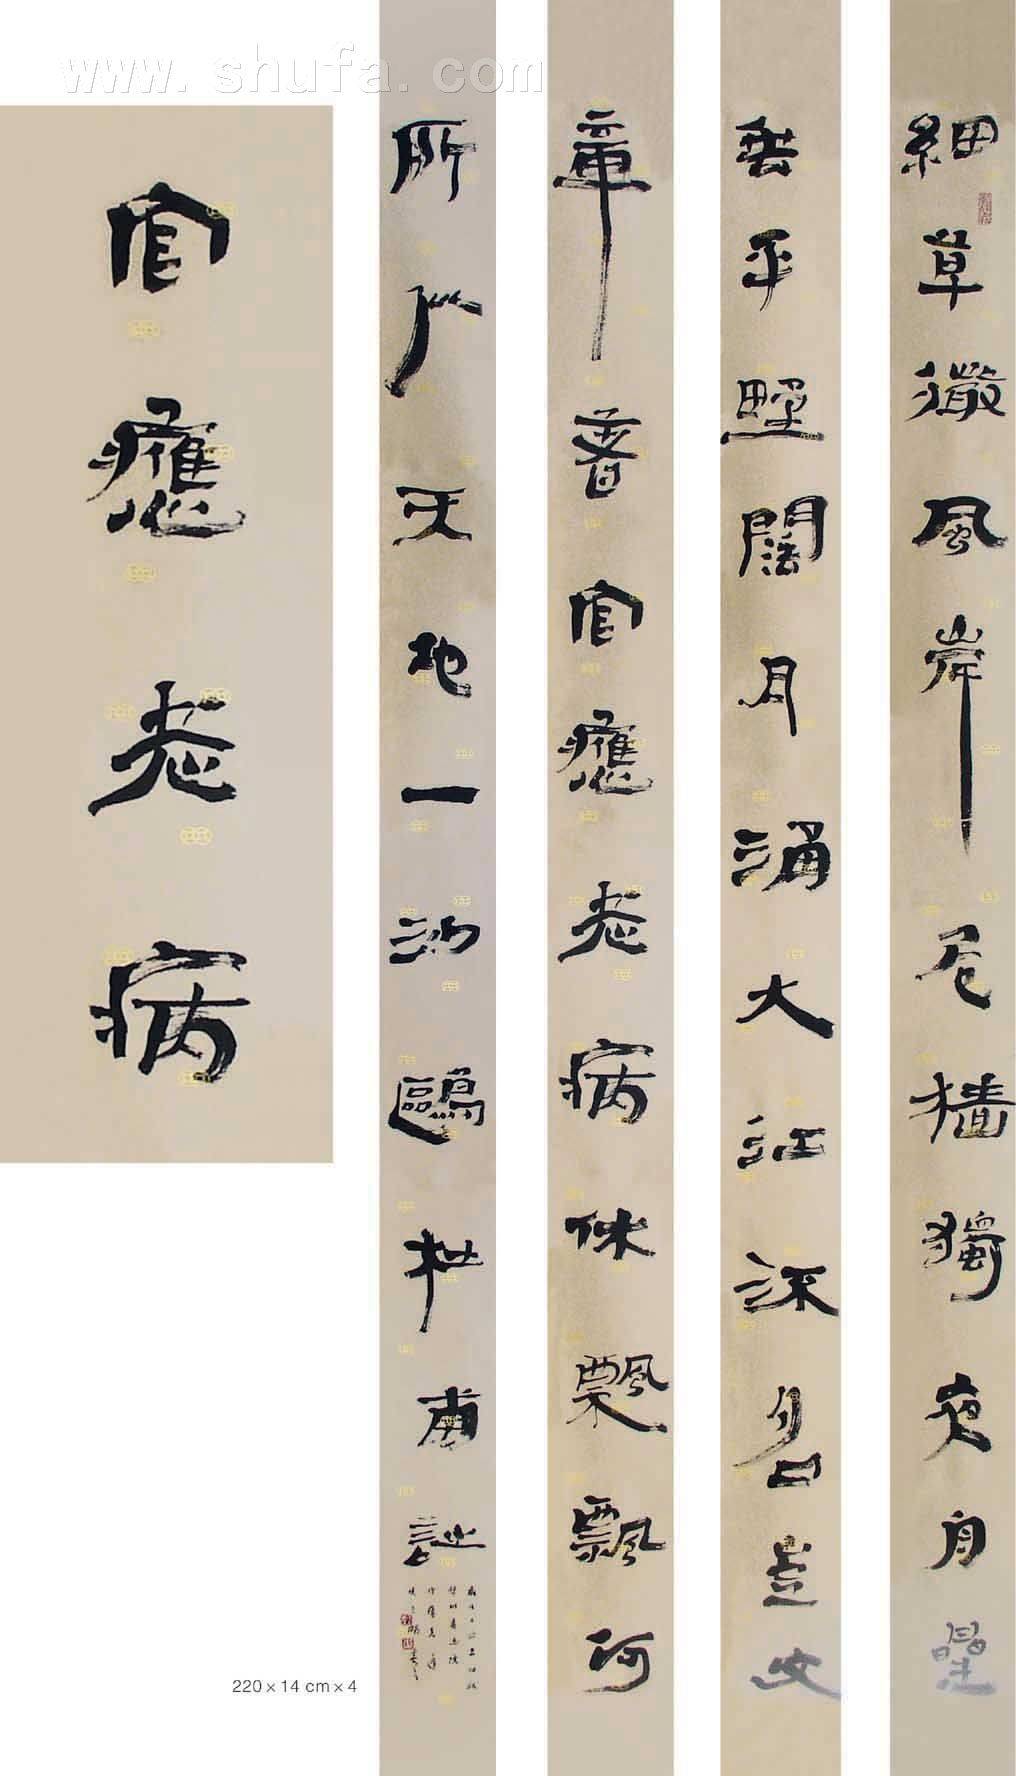 www.shufa.com
細草微風岸危檣獨夜舟星
垂平野闊月涌大江流名豈文
章著官應老病休飄飄何
所似天地一沙鷗杜甫詩
官應老病
220×14 cm×4